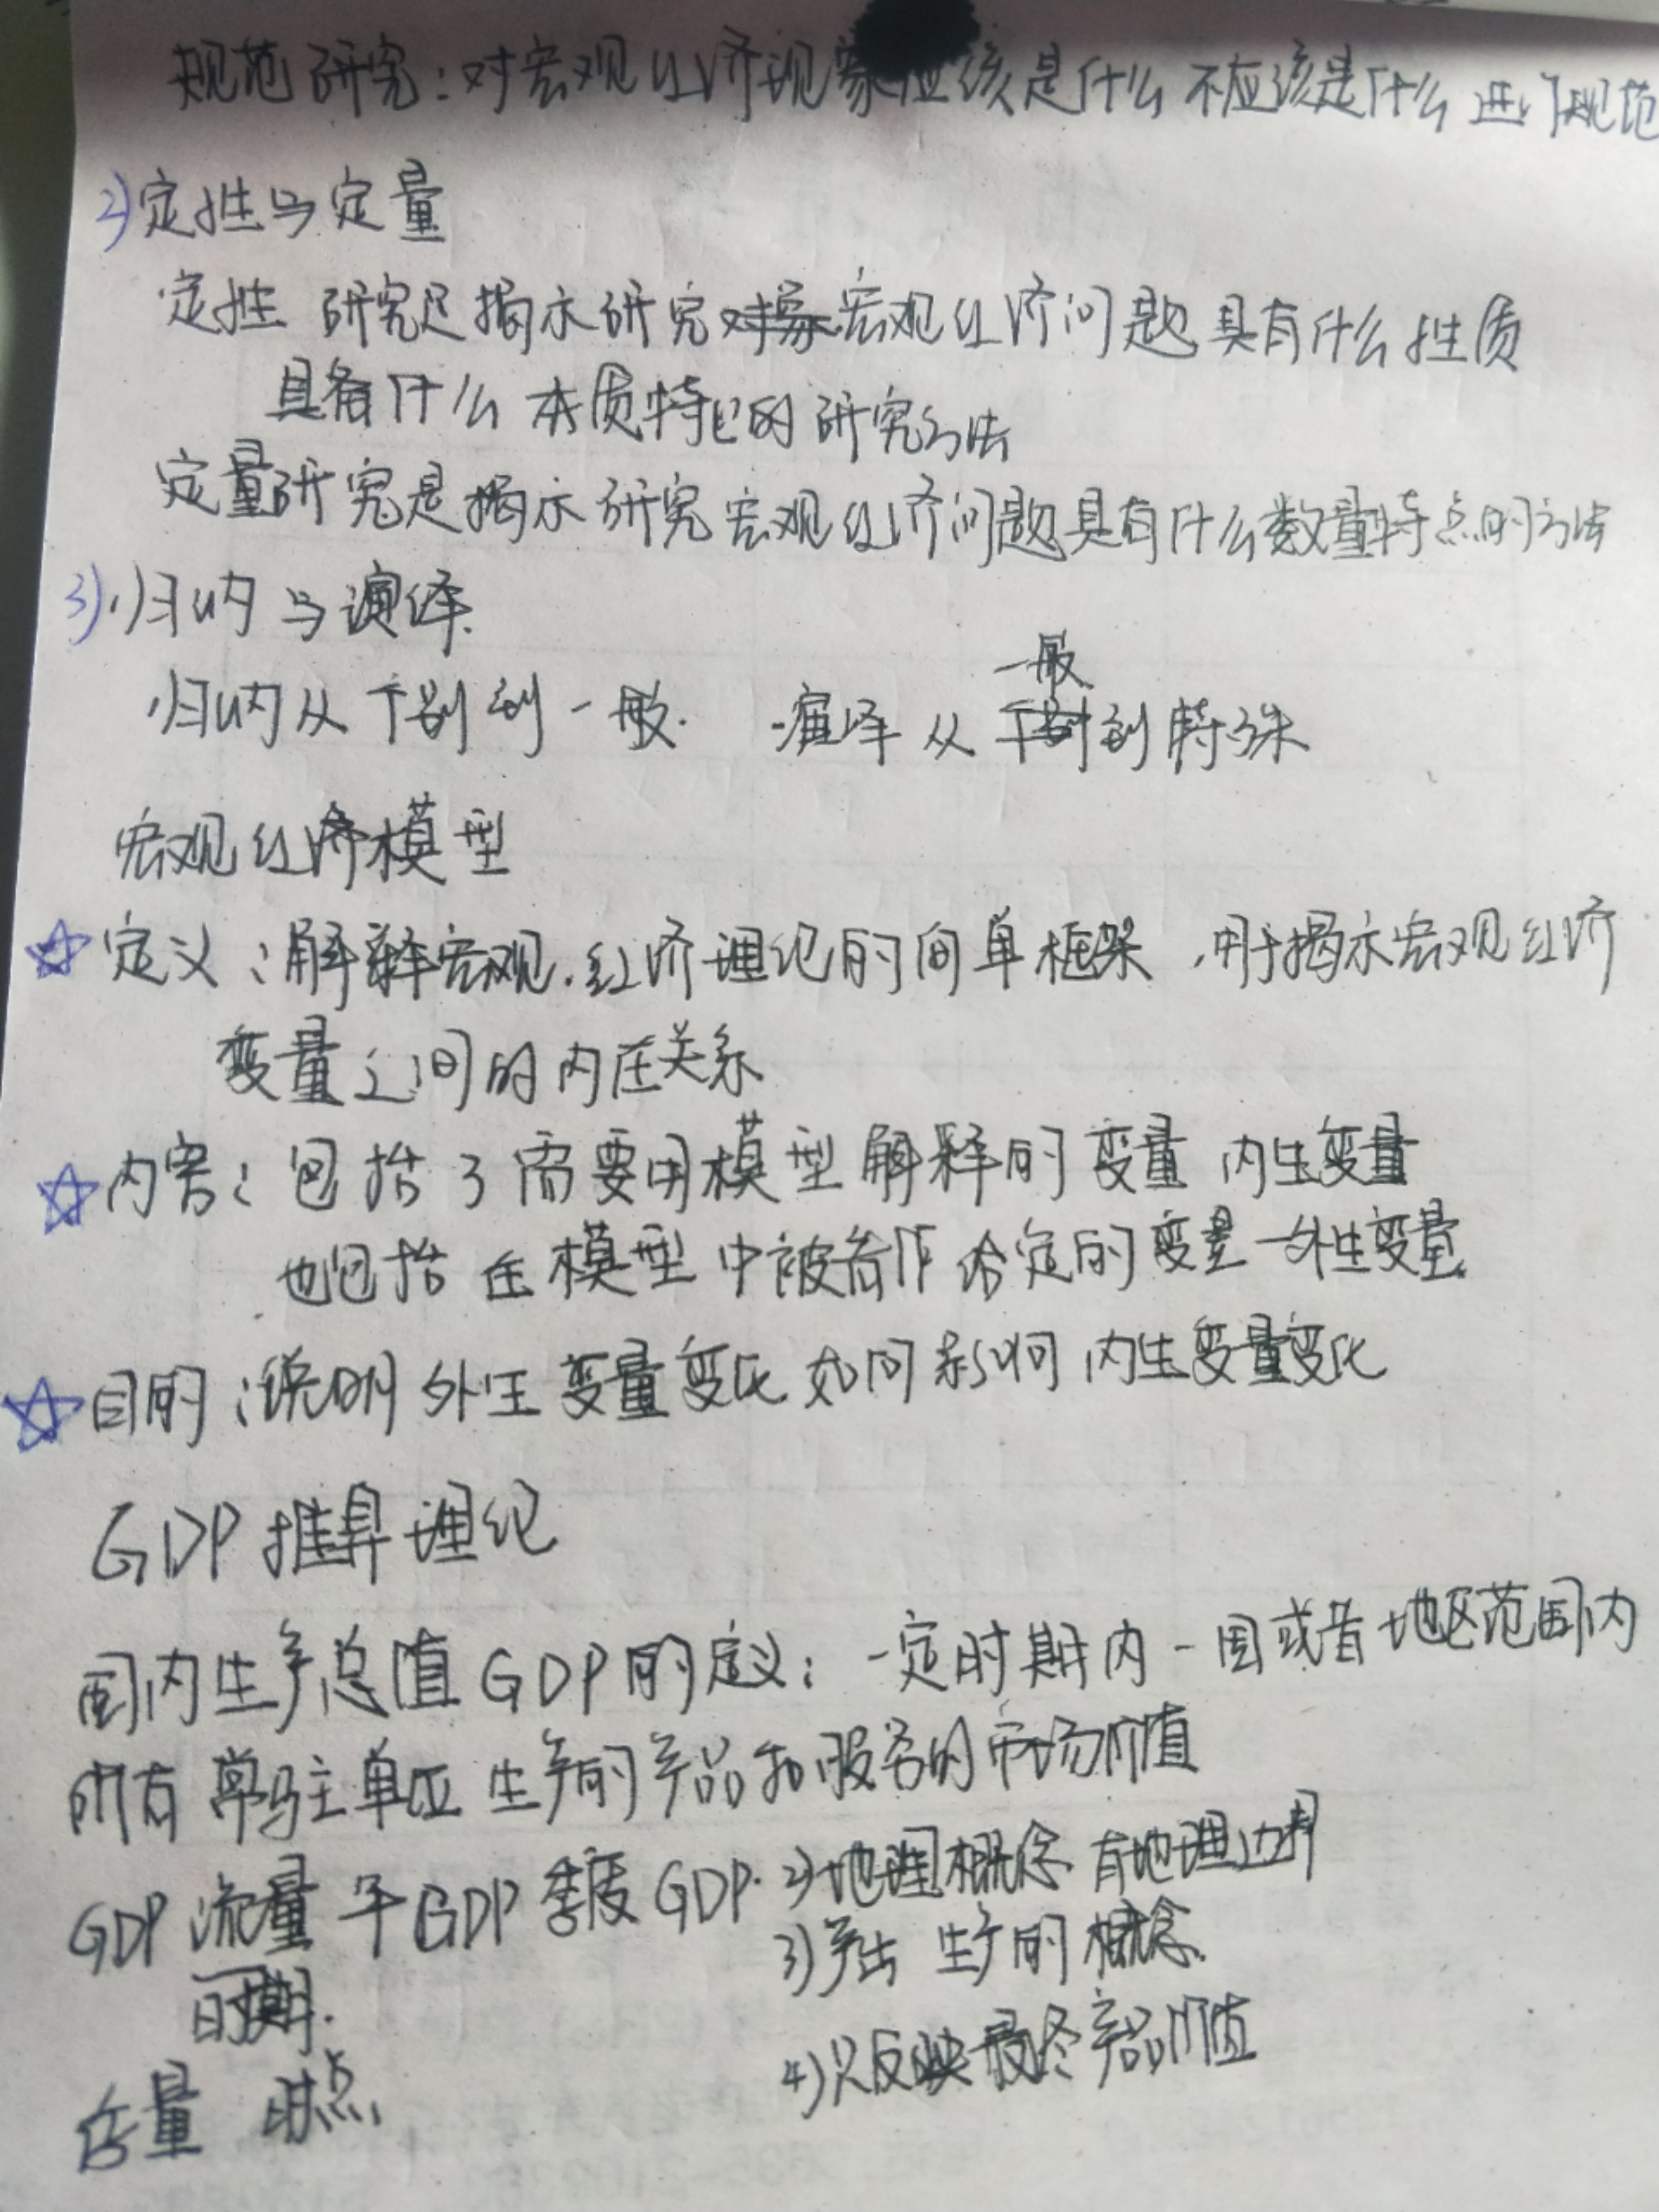 规范研究:对宏观经济现象应该是什么不应该是什么进行规范
2)定性与定量
定性 研究是揭示研究宏观经济问题具有什么性质
具备什么本质特征的研究方法
定量研究是揭示研究宏观经济问题具有什么数量特点的方法
3)归纳与演绎
归纳从个别到一般. 演绎从一般到特殊
宏观经济模型
☆定义:解释宏观经济理论的简单框架,用于揭示宏观经济
变量之间的内在关系
☆内容:包括了需要用模型解释的变量 内生变量
也包括在模型中被看作给定的变量—外生变量
☆目的:说明外生变量变化如何影响内生变量变化
GDP推算理论
国内生产总值GDP的定义:一定时期内一国或者地区范围内
所有常驻单位生产的产品和服务的市场价值
GDP 流量 年GDP 季度GDP. 2)地理概念 有地理边界
时期. 3)产出 生产的概念.
4)只反映最终产品价值
存量 时点